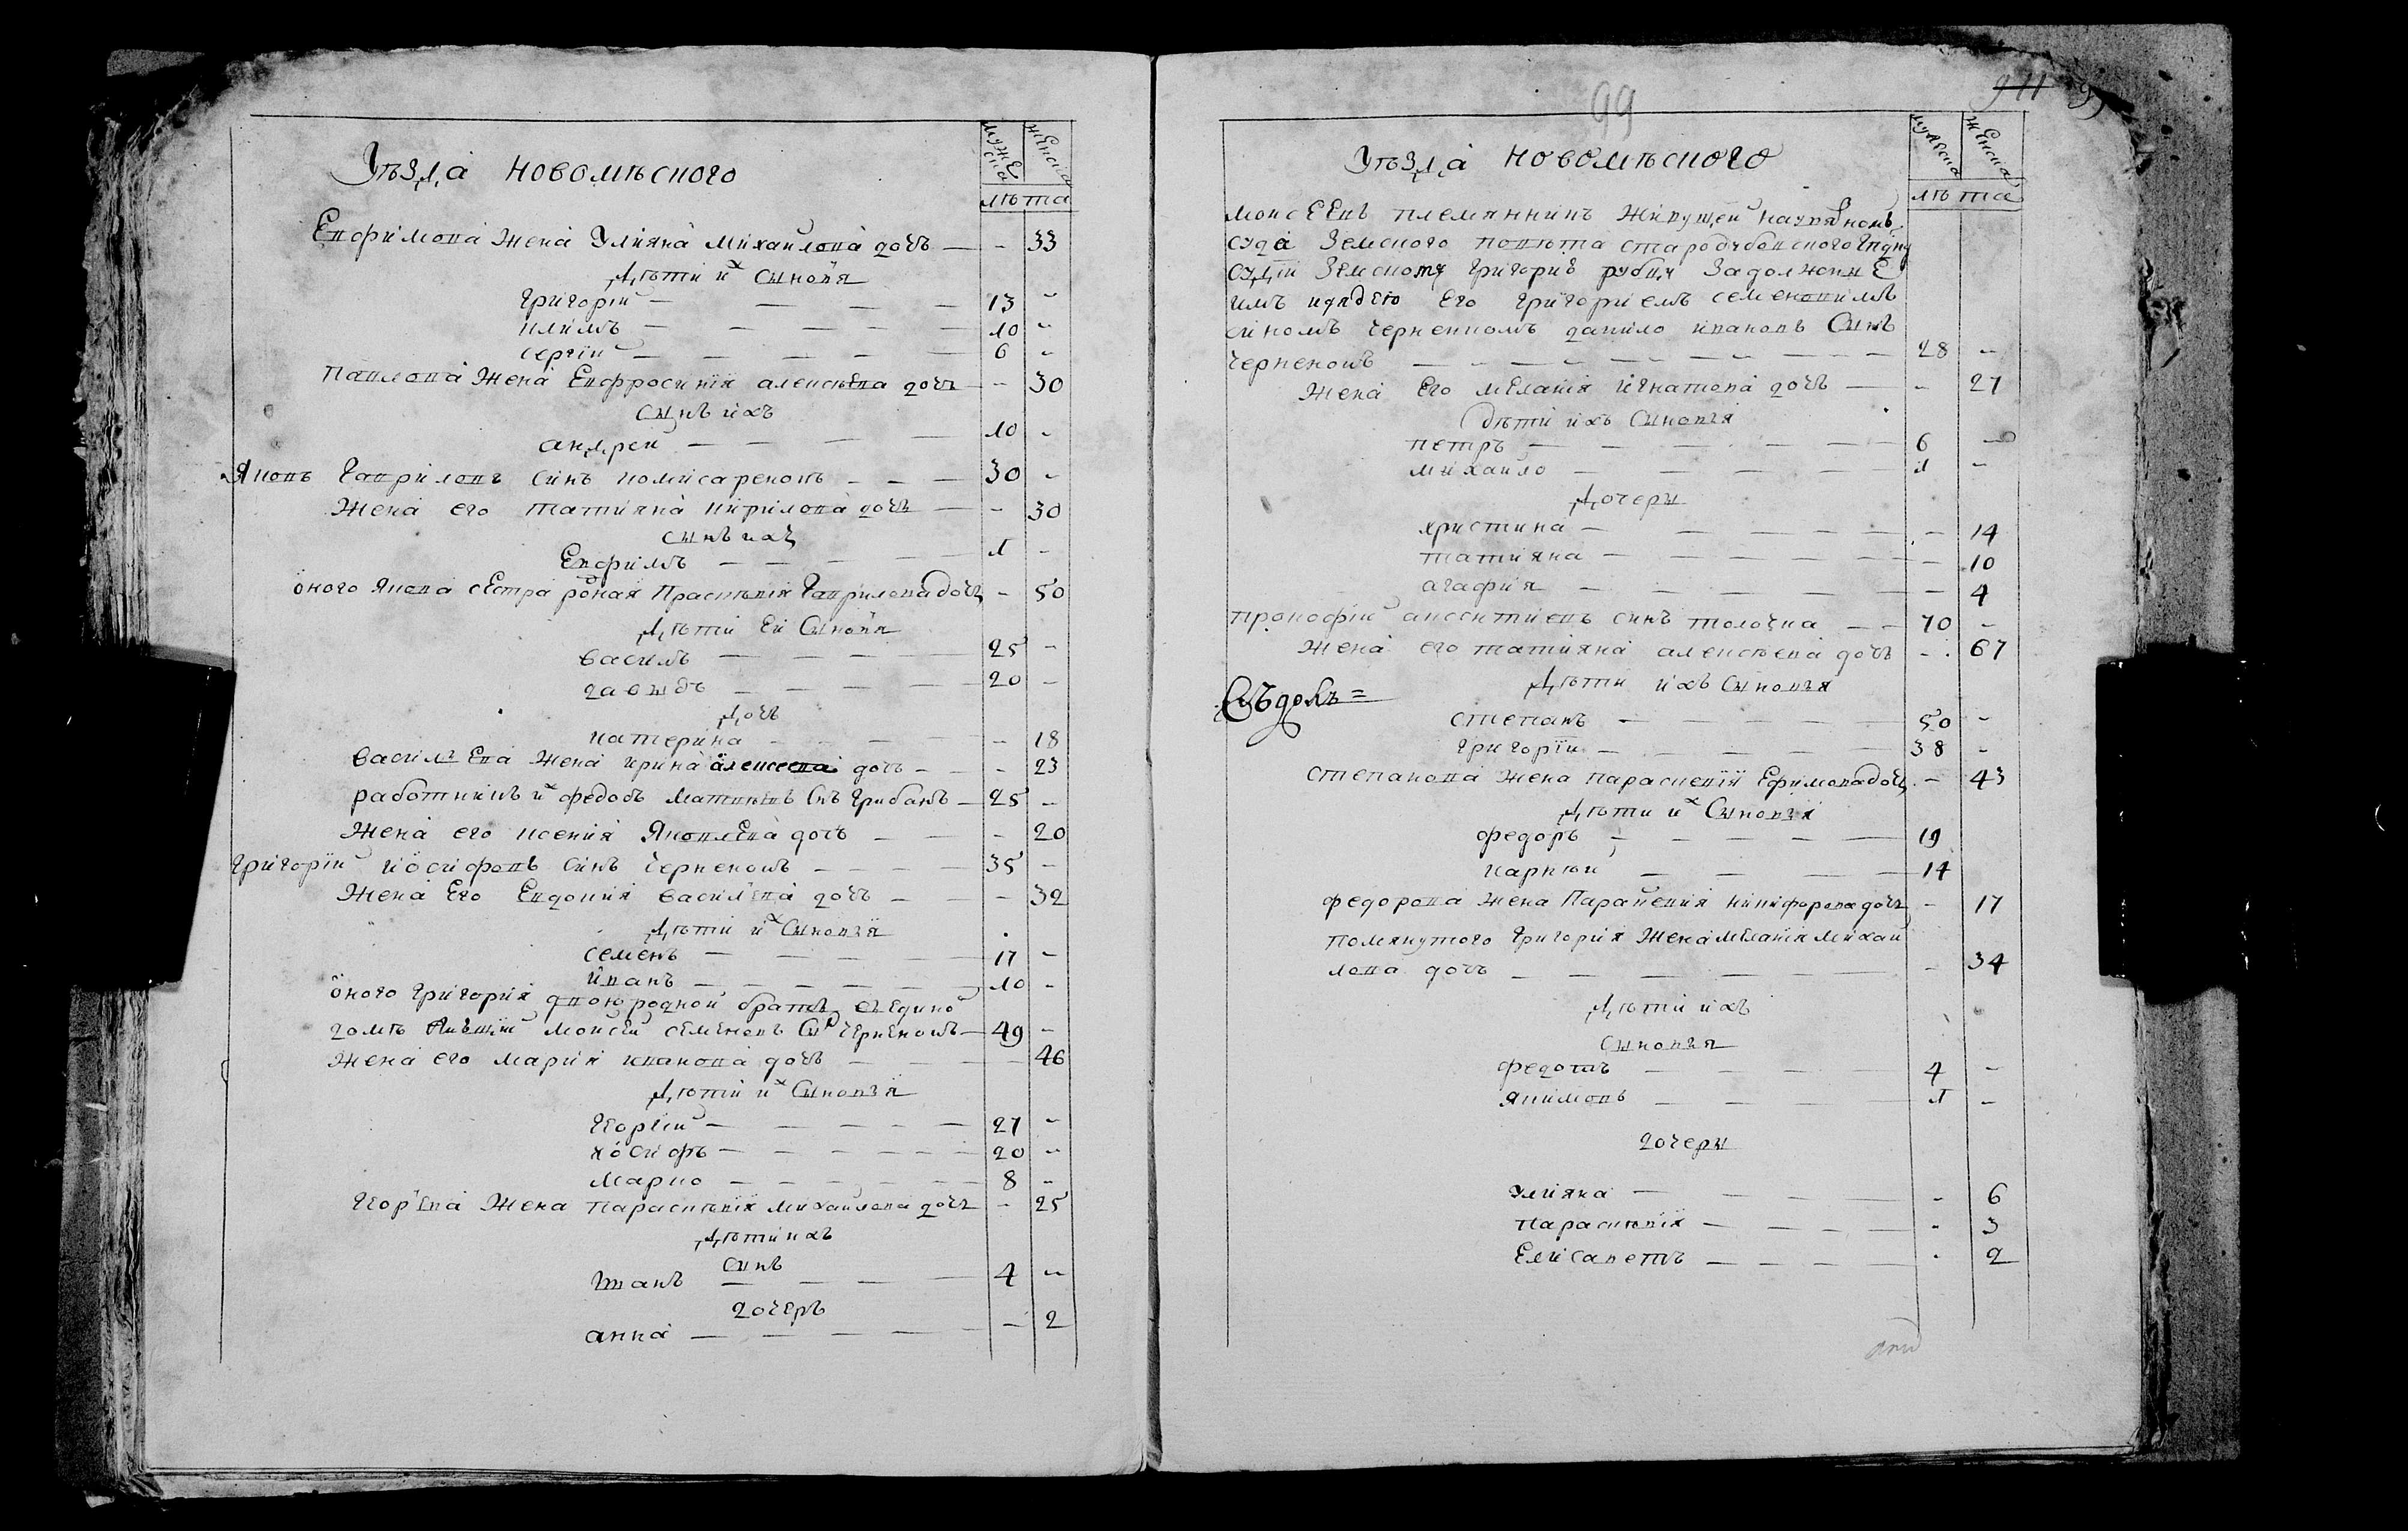 Уѣзда новомѣского
мужеска
женска
лѣта
Евфимова жена Улияна михаилова дочь — - 33
Дѣти их синовя
григории — 13 -
климъ — 10 -
сергіи — 6 -
павлова жена Евфросинія алексѣева дочь — - 30
сынъ ихъ
андреи — 10 -
Яковъ гавриловъ синъ комисаренокъ — 30 -
жена его татияна кирилова дочь — - 30
сынъ ихъ
Евфимъ — 1 -
оного якова сестра родная Прасковія гаврилова дочь - 50
Дѣти еи Синовя
василь — 25 -
давыдъ — 20 -
Дочь
катерина — - 18
василева жена ирина алексеева дочь — - 23
работникъ их федоръ матвѣевъ Снъ грибанъ — 25 -
жена его ксения Яковлева дочь — - 20
григории иосифовъ синъ черненокъ — 35 -
жена Его Евдокия василева дочь — - 32
Дѣти их Синовья
семенъ — 17 -
иванъ — 10 -
оного григория двоюродной братъ въ едино
домѣ жившіи моисеи семеновъ Снъ черненокъ — 49 -
жена его мария иванова дочь — - 46
Дѣти их Синовья
георгіи — 27 -
иосифъ — 20 -
марко — 8 -
георгева жена парасковия михаилова дочь — - 25
Дѣти ихъ
синъ
иванъ — 4 -
дочеръ
анна — - 2
99
941
Уѣзда новомѣского
мужеска
женска
лѣта
моисеевъ племянникъ живущеи
суда земского повѣта стародубовского
земскому григорию рубцу задолжение
имъ его григориемъ семеновимъ
синомъ черненкомъ данило ивановъ Синъ
черненокъ — 28 -
жена его мелания игнатова дочь — - 27
дѣти ихъ Синовья
петръ — 6 -
михаило — 1 -
Дочеры
христина — - 14
татияна — - 10
агафия — - 4
прокофіи авсентиевъ синъ толочка — 70 -
жена его татияна алексѣева дочь - 67
Дѣти ихъ Синовья
степанъ — 50 -
григории — 38 -
степанова жена парасковия Ефимова дочь — 43
Дѣти их Синовья
федоръ — 19
карпъ — 14
федорова жена Парасковия никифорова дочь - 17
помянутого григория жена мелания михаи
лова дочь — - 34
Дѣти ихъ
синовья
федотъ — 4 -
якимовъ — 1 -
дочеры
улияна — - 6
парасковія — - 3
Елисаветъ — - 2